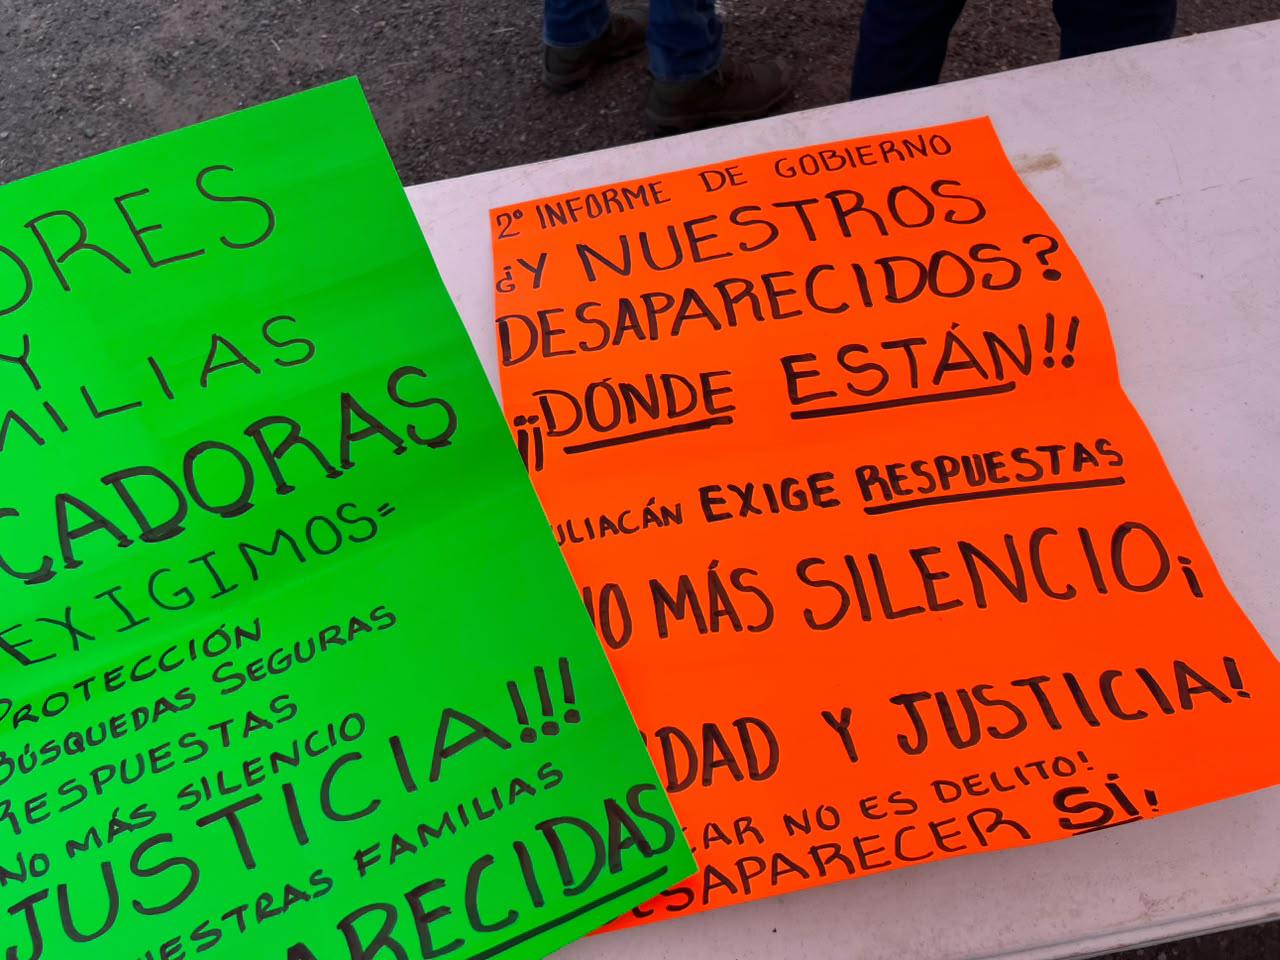 ORES
Y
MILIAS
CADORAS
EXIGIMOS=
PROTECCIÓN
BÚSQUEDAS SEGURAS
RESPUESTAS
NO MÁS SILENCIO
JUSTICIA!!!
ESTRAS FAMILIAS
ARECIDAS
2º INFORME DE GOBIERNO
¿Y NUESTROS
DESAPARECIDOS?
¡¡DÓNDE ESTÁN!!
ULIACÁN EXIGE RESPUESTAS
NO MÁS SILENCIO¡
RDAD Y JUSTICIA!
CAR NO ES DELITO!
ESAPARECER SÍ!